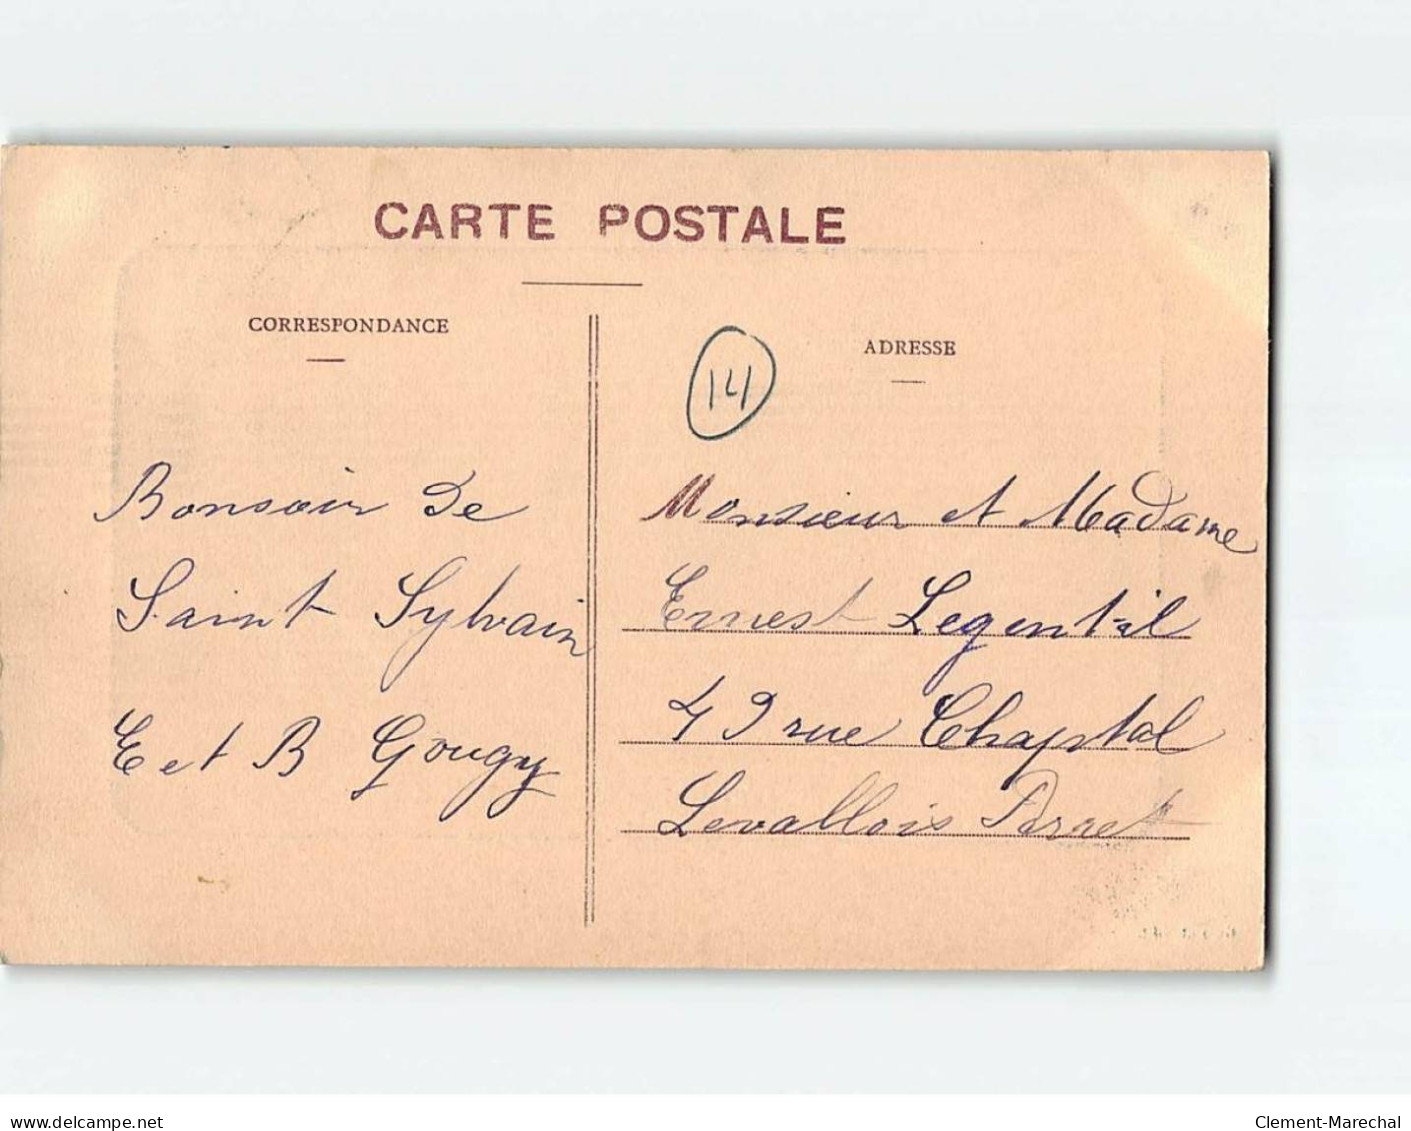 CARTE POSTALE
CORRESPONDANCE
ADRESSE
14
Bonsoir de
Saint Sylvain
E et B Gougy
Monsieur et Madame
Ernest Legentil
49 rue Chaptal
Levallois Perret
delcampe.net
Clement-Marechal